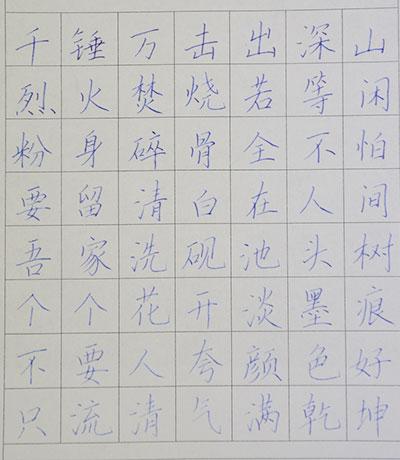 千锤万击出深山
烈火焚烧若等闲
粉身碎骨全不怕
要留清白在人间
吾家洗砚池头树
个个花开淡墨痕
不要人夸颜色好
只流清气满乾坤